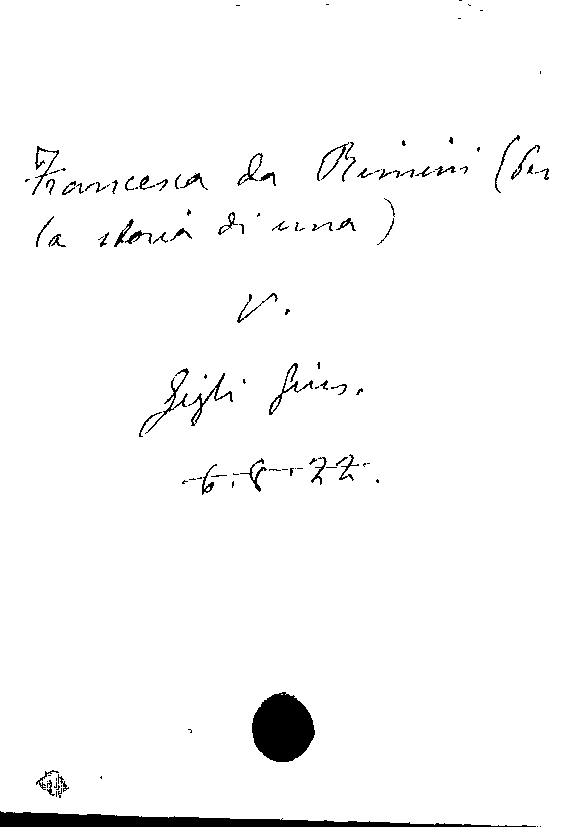 Francesca da Rimini (Per
la storia di una)
V.
Gigli Gius.
6.8.22.